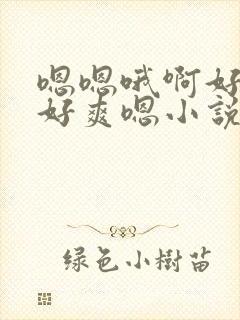 嗯嗯哦啊好
好爽嗯小說
绿色小樹苗